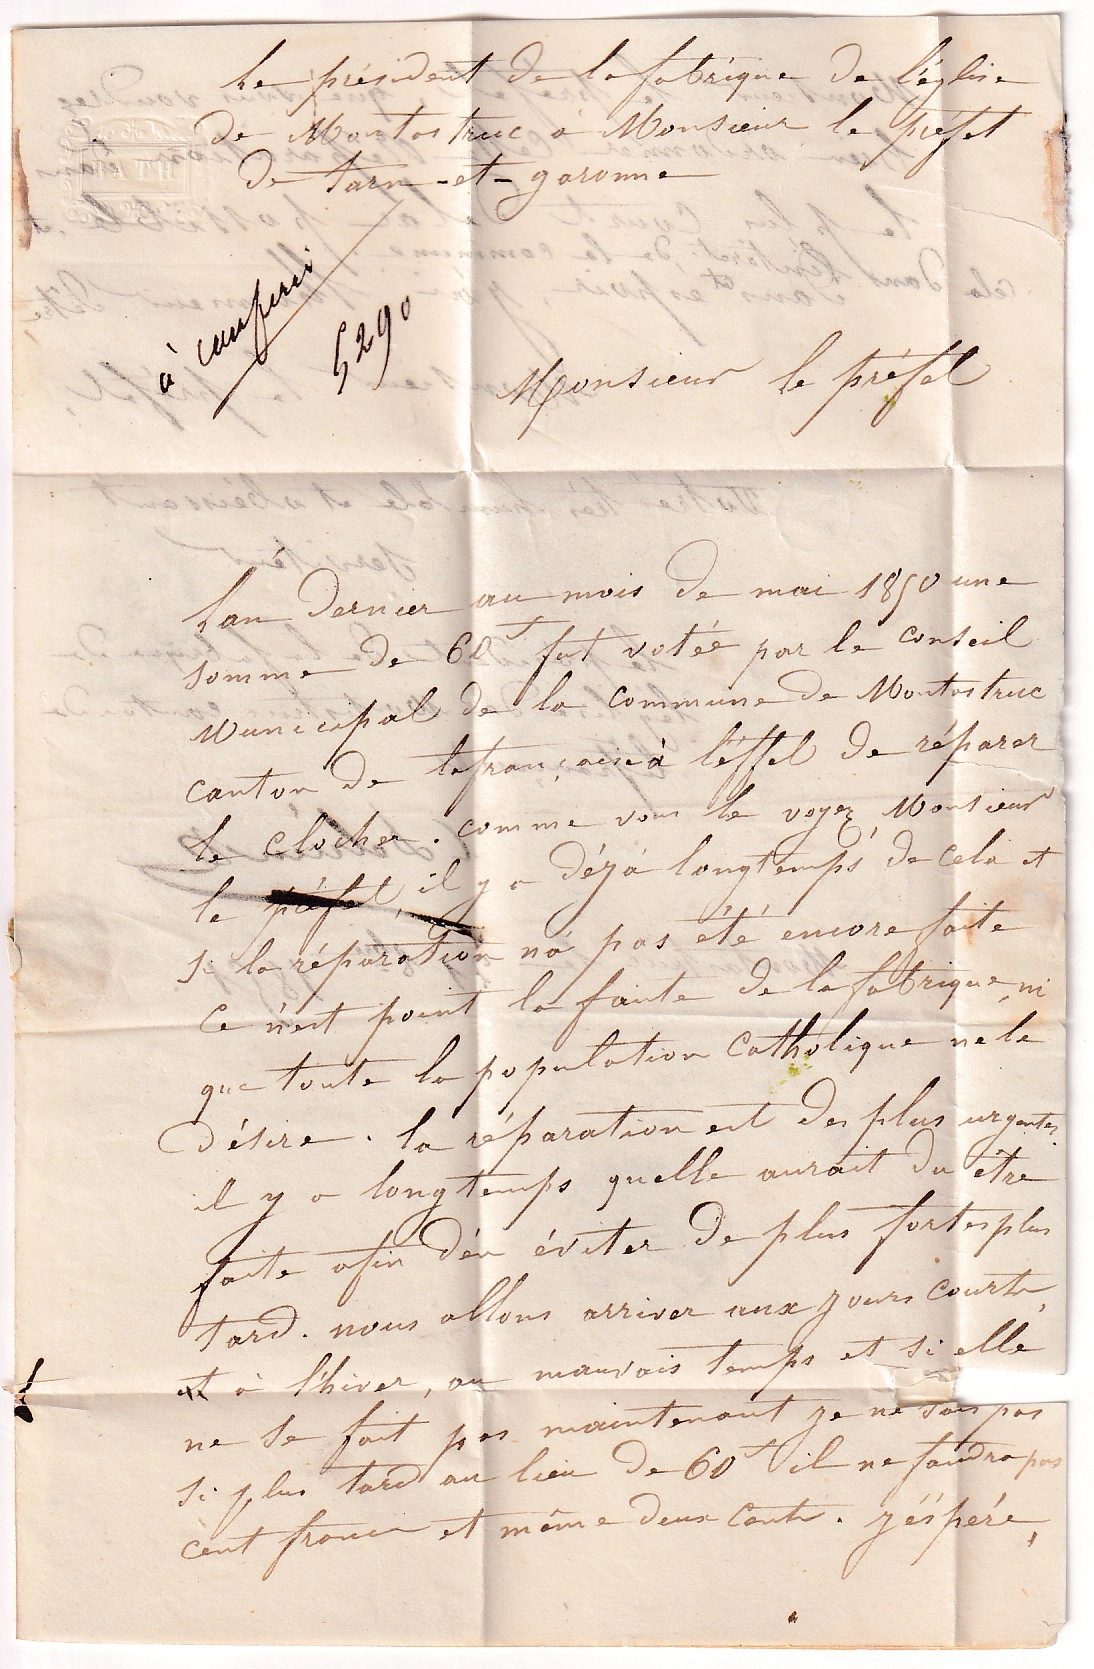 Le président de la fabrique de l'église
de Montastruc a Monsieur le préfet
de Tarn-et-garonne
à
5290
Monsieur le préfet
Lan dernier au mois de mai 1850 une
somme de 60f fut votée par le conseil
Municipal de la commune de Montastruc
canton de lafrançaise à l'éffet de réparer
le clocher. comme vous le voyez Monsieur
le préfet, il y a déjà longtemps de cela et
si la réparation n'a pas été encore faite
ce n'est point la faute de la fabrique, ni
que toute la population catholique ne le
désire. la réparation est des plus urgentes
il y a longtemps quelle aurait du être
faite afin d'én éviter de plus fortes plus
tard. nous allons arriver aux jours courts,
et à l'hiver, au mauvais temps et si elle
ne se fait pas maintenant je ne sais pas
si plus tard au lieu de 60f il ne faudra pas
cent francs et même deux Cents. j'éspére,